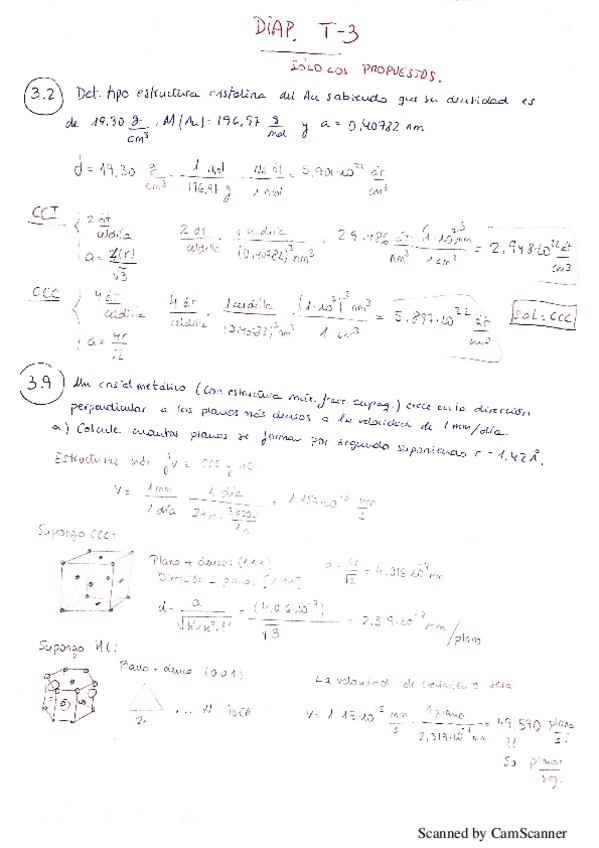 DIAP. T-3
SÓLO LOS PROPUESTOS.
3.2) Det. tipo estructura cristalina del Au sabiendo que su densidad es
de 19.30 g/cm³, M(Au) = 196,97 g/mol y a = 0,40782 nm
d = 19,30 g/cm³ · 1 mol/196,97 g · /1 mol = 5,901·10²² át/cm³
CCI { 2 át/celdilla 2 át/celdilla · 1 celdilla/(0,40782)³ nm³ = 29.486 át/nm³ · (1·10⁷)³ nm³/1 cm³ = 2.948·10²² át/cm³
a = 4(r)/√3
CCC { 4 át/celdilla 4 át/celdilla · 1 celdilla/(0,40782)³ nm³ · (1·10⁷)³ nm³/1 cm³ = 5.897·10²² át/cm³ SOL: CCC
a = 4r/√2
3.9) Un cristal metálico (con estructura máx. fact. empaq.) crece en la dirección
perpendicular a los planos más densos a la velocidad de 1 mm/día.
a) Calcule cuantos planos se forman por segundo suponiendo r = 1,42 Å.
Estructuras más CCC y HC
V = 1 mm/1 día · 1 día/ = 1.15 ·10⁻⁵ mm/s
Supongo CCC:
Plano + denso: (111) a = 4r/√2 = 4.016·10⁻⁷ mm
Dirección ⊥ plano: [111]
d = a/√h²+k²+l² = /√3 = 2.39·10⁻⁷ mm/plano
Supongo HC:
Plano + denso (001) La velocidad de crecimiento será
2r ... IDEA V = 1.15·10⁻⁵ mm/s · 1 plano/2,319·10⁻⁷ mm = 49,590 plano/s
50 planos/seg.
Scanned by CamScanner